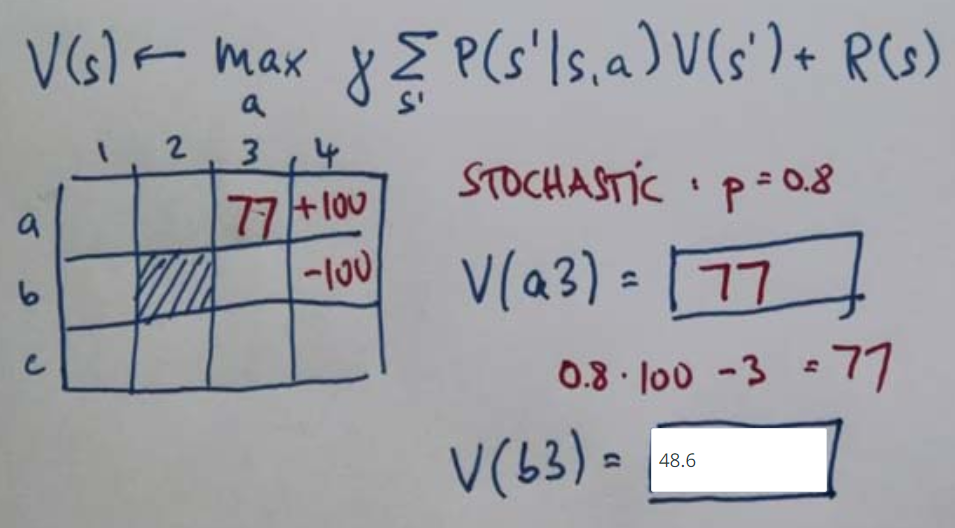 V(s) ← max γ Σ P(s'|s,a) V(s') + R(s)
a s'
1 2 3 4
a 77 +100
b -100
c
STOCHASTIC : p = 0.8
V(a3) = 77
0.8 · 100 - 3 = 77
V(b3) = 48.6